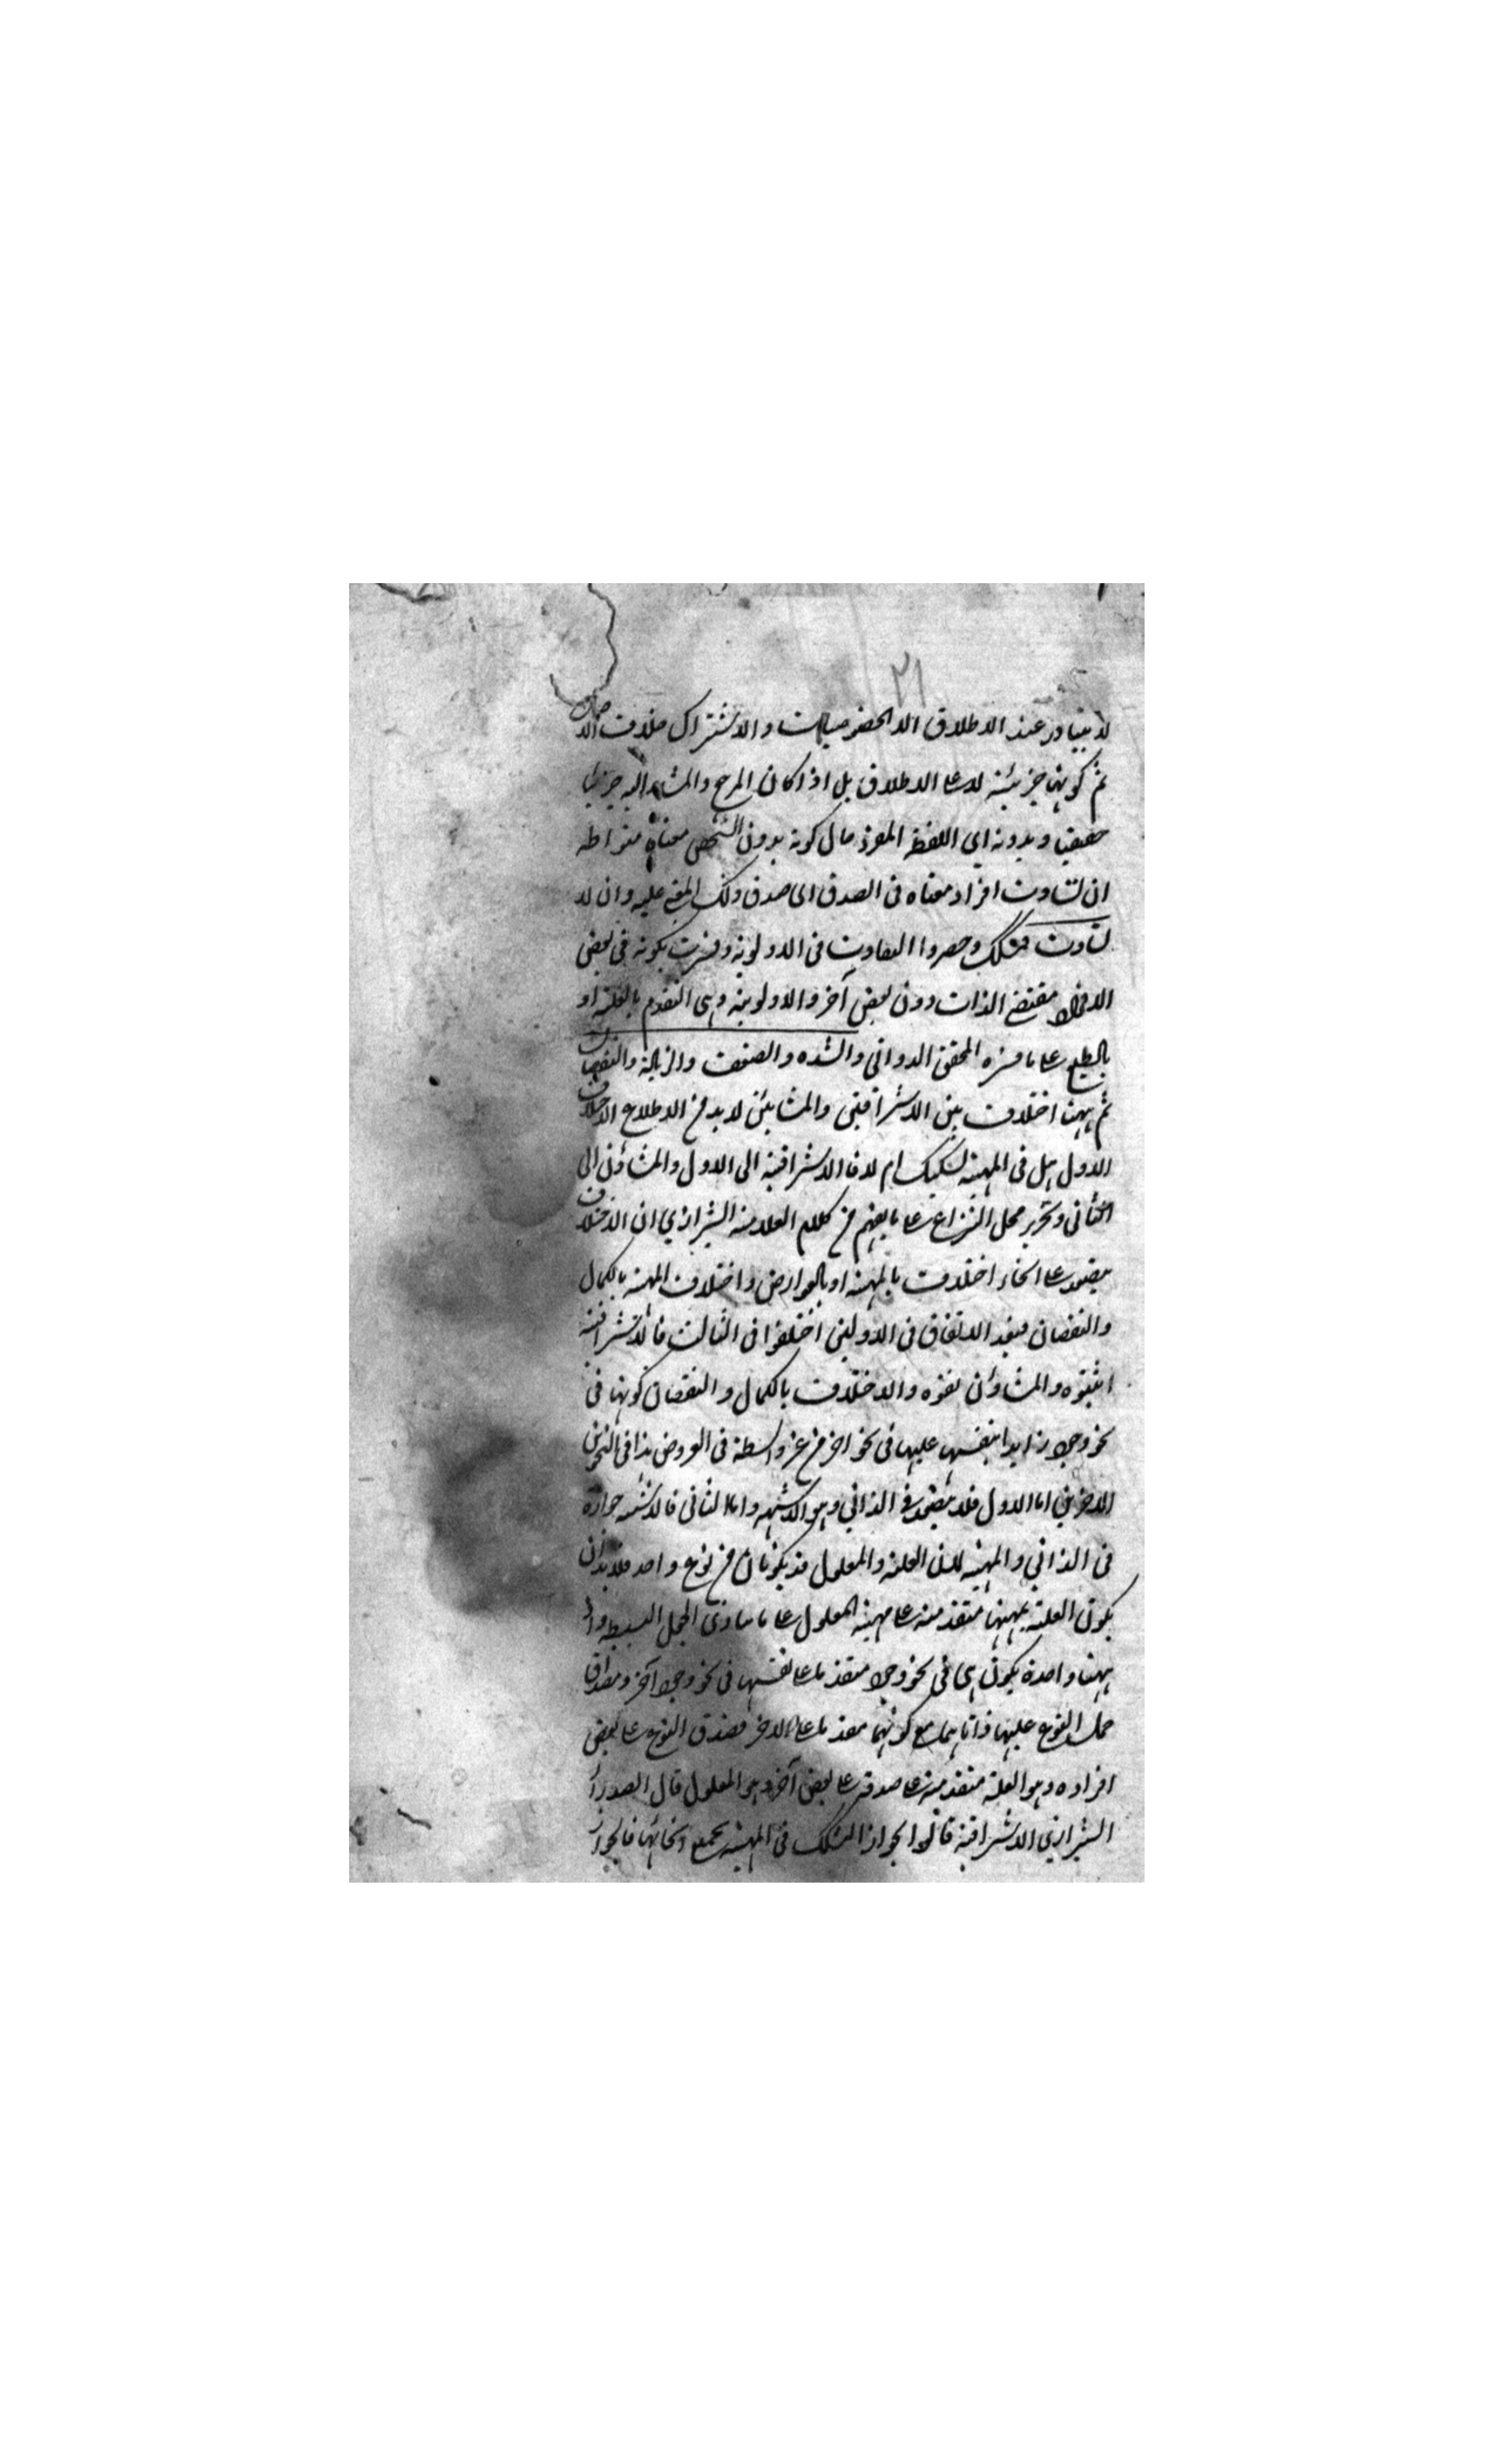 ٢١
لا يتبادر عند الاطلاق الا الخصوصيات والاشتراك خلاف الاصل
ثم كونها جزئية لا على الاطلاق بل اذا كان المرجع والمشار اليه جزئيا
حقيقيا وبدونه اي اللفظ المفرد حال كونه بدون التشخص معناه متواطئ
ان تساوت افراد معناه في الصدق اي صدق ذلك المعنى عليه وان لا
تساوت فمشكك وحصروا التفاوت في الاولوية وفسرت بكونه في بعض
الافراد مقتضى الذات دون بعض آخر والاولية وهي التقدم بالعلية او
بالطبع على ما فسره المحقق الدواني والشدة والضعف والزيادة والنقصان
ثم ههنا اختلاف بين الاشراقيين والمشائين لا بد من الاطلاع الاختلاف
الاول هل في المهية تشكيك ام لا فالاشراقية الى الاول والمشاؤن الى
الثاني وتحرير محل النزاع على ما يفهم من كلام العلامة الشيرازي ان الاختلاف
يتصور على انحاء اختلاف بالمهية او بالعوارض واختلاف المهية بالكمال
والنقصان فبعد الاتفاق في الاولين اختلفوا في الثالث فالاشراقية
اثبتوه والمشاؤن نفوه والاختلاف بالكمال والنقصان كونها في
نحو وجود زايدا بنفسها عليها في نحو اخر من غير واسطة في العروض هذا في النحوين
الاخرين اما الاول فلا يتصور في الذاتي وهو الاشبه واما الثاني فالاشبه جوازه
في الذاتي والمهية لان العلة والمعلول قد يكونان من نوع واحد فلا بد ان
يكون العلة بمهيتها متقدمة على مهية المعلول على ما ساوى الجعل البسيط
مهية واحدة يكون هي في نحو وجود متقدما على نفسها في نحو وجود آخر ومصداق
حمل النوع عليها ذاتاهما مع كونهما متقدما على الاخر فصدق النوع على بعض
افراده وهو العلة متقدمة على صدقه على بعض آخر وهو المعلول قال الصدر
الشيرازي الاشراقية قالوا بجواز التشكك في المهية بجميع انحائها فالجواز